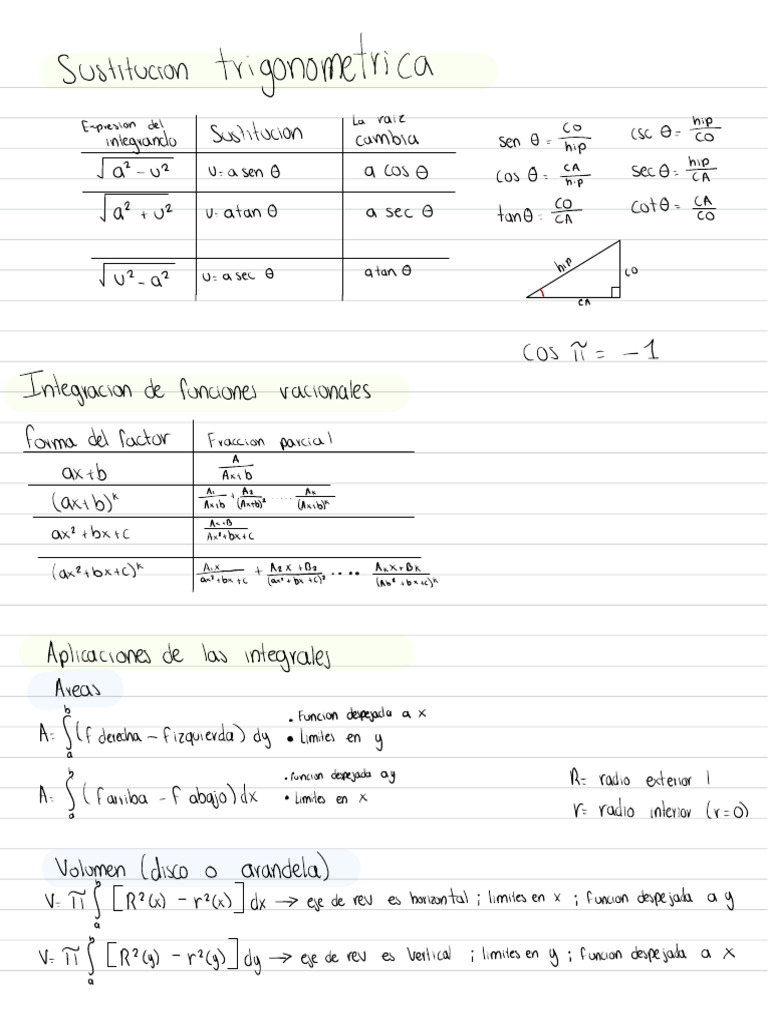 Sustitucion trigonometrica
Expresion del integrando | Sustitucion | La raiz cambia
√(a² - u²) | u = a sen θ | a cos θ
√(a² + u²) | u = a tan θ | a sec θ
√(u² - a²) | u = a sec θ | a tan θ
sen θ = CO/hip csc θ = hip/CO
cos θ = CA/hip sec θ = hip/CA
tan θ = CO/CA cot θ = CA/CO
hip
CO
CA
cos π = -1
Integracion de funciones racionales
forma del factor | Fraccion parcial
ax+b | A/(Ax+b)
(ax+b)^k | A1/(Ax+b) + A2/(Ax+b)² ..... Ak/(Ax+b)^k
ax²+bx+c | (Ax+B)/(Ax²+bx+c)
(ax²+bx+c)^k | A1x/(ax²+bx+c) + (A2x+B2)/(ax²+bx+c)² .... (Akx+Bk)/(Ab²+bx+c)^k
Aplicaciones de las integrales
Areas
A = ∫ₐᵇ (f derecha - f izquierda) dy • Funcion despejada a x
• Limites en y
A = ∫ₐᵇ (f arriba - f abajo) dx • funcion despejada a y
• Limites en x
R = radio exterior |
r = radio interior (r=0)
Volumen (disco o arandela)
V = π ∫ₐᵇ [R²(x) - r²(x)] dx → eje de rev es horizontal ; limites en x ; funcion despejada a y
V = π ∫ₐᵇ [R²(y) - r²(y)] dy → eje de rev es vertical ; limites en y ; funcion despejada a x